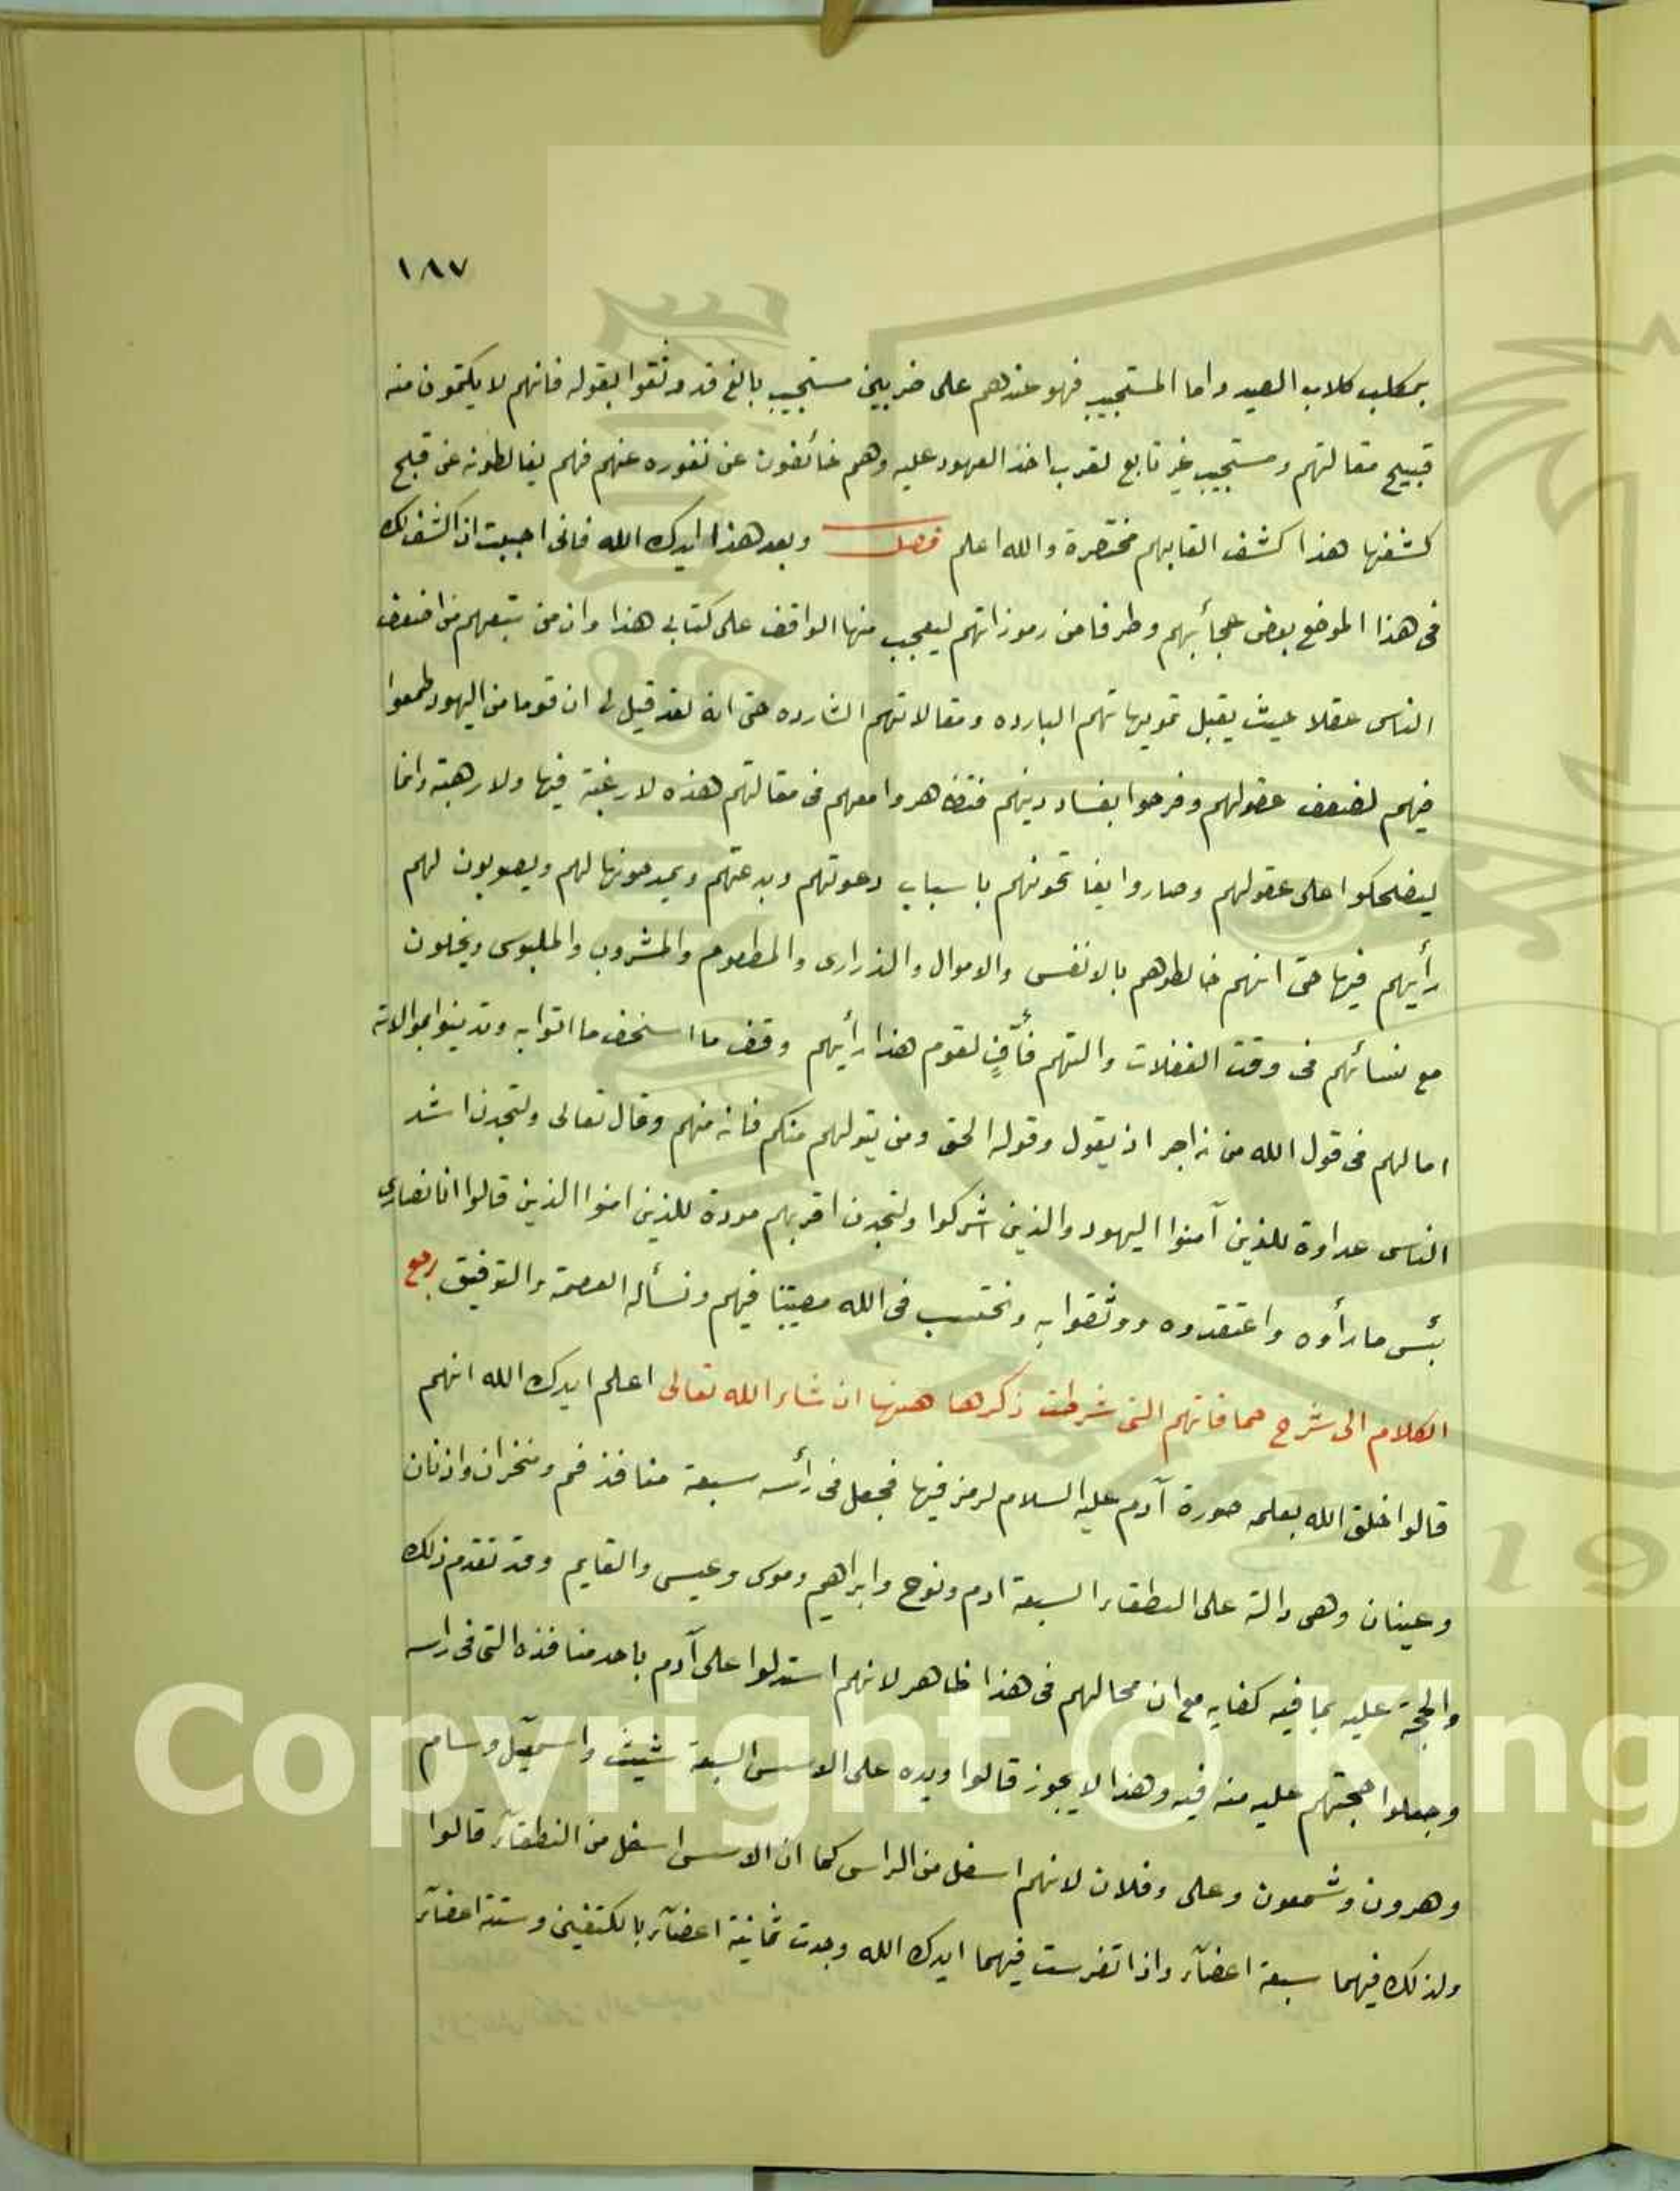 ١٨٧
بمكلب كلاب الصيد واما المستجيب فهو عندهم على ضربين مستجيب بالغ قد وثقوا بقوله فانهم لا يكتمون منه
قبيح مقالتهم ومستجيب غير تابع لقرب اخذ العهود عليه وهم خائفون عن نفوره عنهم فهم يغالطونه عن قبح
كشفها هذا كشف القابهم مختصرة والله اعلم فصل وبعد هذا ايدك الله فانى احببت ان اكشف لك
فى هذا الموضع بعض عجائبهم وطرفا من رموزاتهم ليعجب منها الواقف على كتابى هذا وان من يتبعهم من اضعف
الناس عقلا حيث يقبل تمويهاتهم البارده ومقالاتهم الشارده حتى انه لقد قيل لى ان قوما من اليهود طمعوا
فيهم لضعف عقولهم وفرحوا بفساد دينهم فتظاهروا معهم فى مقالتهم هذه لا رغبة فيها ولا رهبة وانما
ليضحكوا على عقولهم وصاروا يفاتحونهم باسباب دعوتهم وبدعتهم ويمدحونها لهم ويصوبون لهم
رأيهم فيها حتى انهم خالطوهم بالانفس والاموال والذرارى والمطعوم والمشروب والملبوس ويخلون
مع نسائهم فى وقت الغفلات والتهم فأُفٍّ لقوم هذا رأيهم وقف ما اسخف ما اتوا به وتدينوا بموالاته
امالهم فى قول الله من زاجر اذ يقول وقوله الحق ومن يتولهم منكم فانه منهم وقال تعالى ولتجدن اشد
الناس عداوة للذين آمنوا اليهود والذين اشركوا ولتجدن اقربهم مودة للذين امنوا الذين قالوا انا نصارى
بئس ما رأوه واعتقدوه ووثقوا به ونحتسب فى الله مصيبتنا فيهم ونسأله العصمة والتوفيق رجع
الكلام الى شرح حماقاتهم التى شرطت ذكرها ههنا ان شاء الله تعالى اعلم ايدك الله انهم
قالوا خلق الله بعلمه صورة آدم عليه السلام لرمز فيها فجعل فى رأسه سبعة منافذ فم ومنخران واذنان
وعينان وهى دالة على النطقاء السبعة ادم ونوح وابراهيم وموسى وعيسى والقايم وقد تقدم ذلك
والحجة عليه بما فيه كفايه مع ان محالهم فى هذا ظاهر لانهم استدلوا على آدم باحد منافذه التى فى راسه
وجعلوا حجتهم عليه منه فيه وهذا لا يجوز قالوا ويده على الاسس السبعة شيث واسمعيل وسام
وهرون وشمعون وعلى وفلان لانهم اسفل من الراس كما ان الاسس اسفل من النطقآء قالوا
ولذلك فيهما سبعة اعضآء واذا تفرست فيهما ايدك الله وجدت ثمانية اعضآء بالكتفين وستة اعضآء
Copyright © King
19